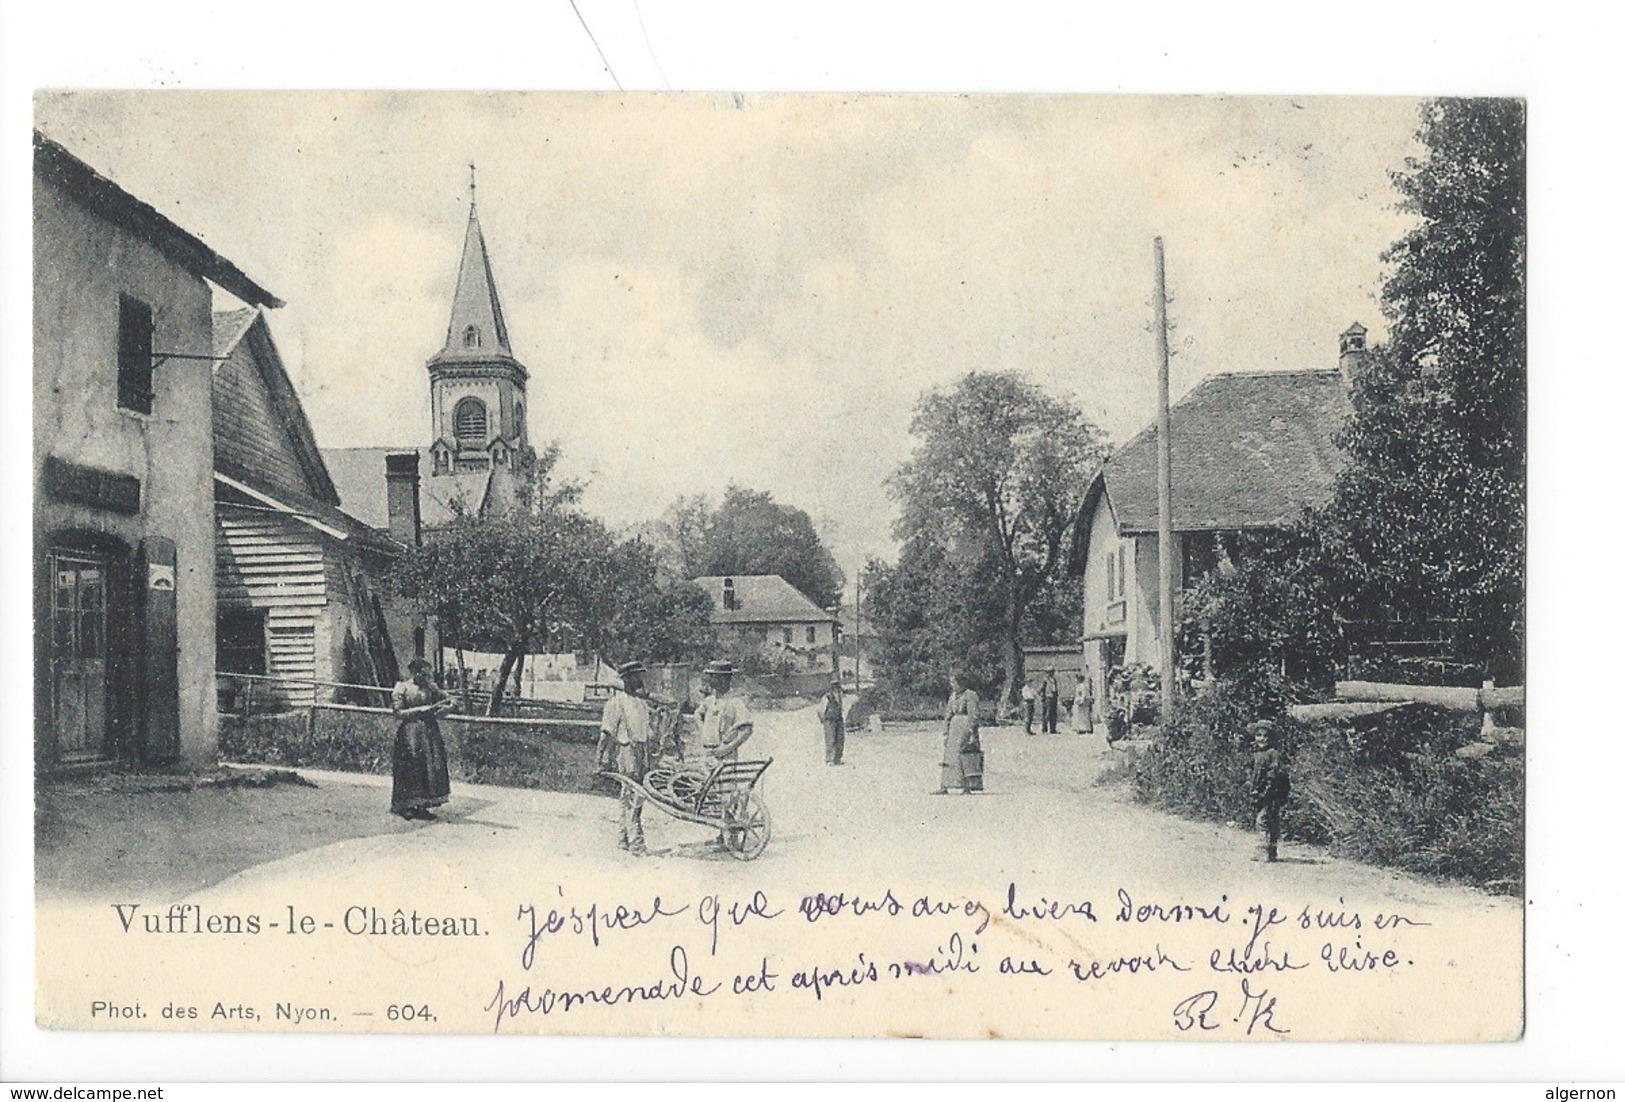 Vufflens-le-Château.
j'éspere que vous avez bien dormi. je suis en
promenade cet aprés midi au revoir chére Elise.
R. K
Phot. des Arts, Nyon. — 604.
delcampe.net
algernon